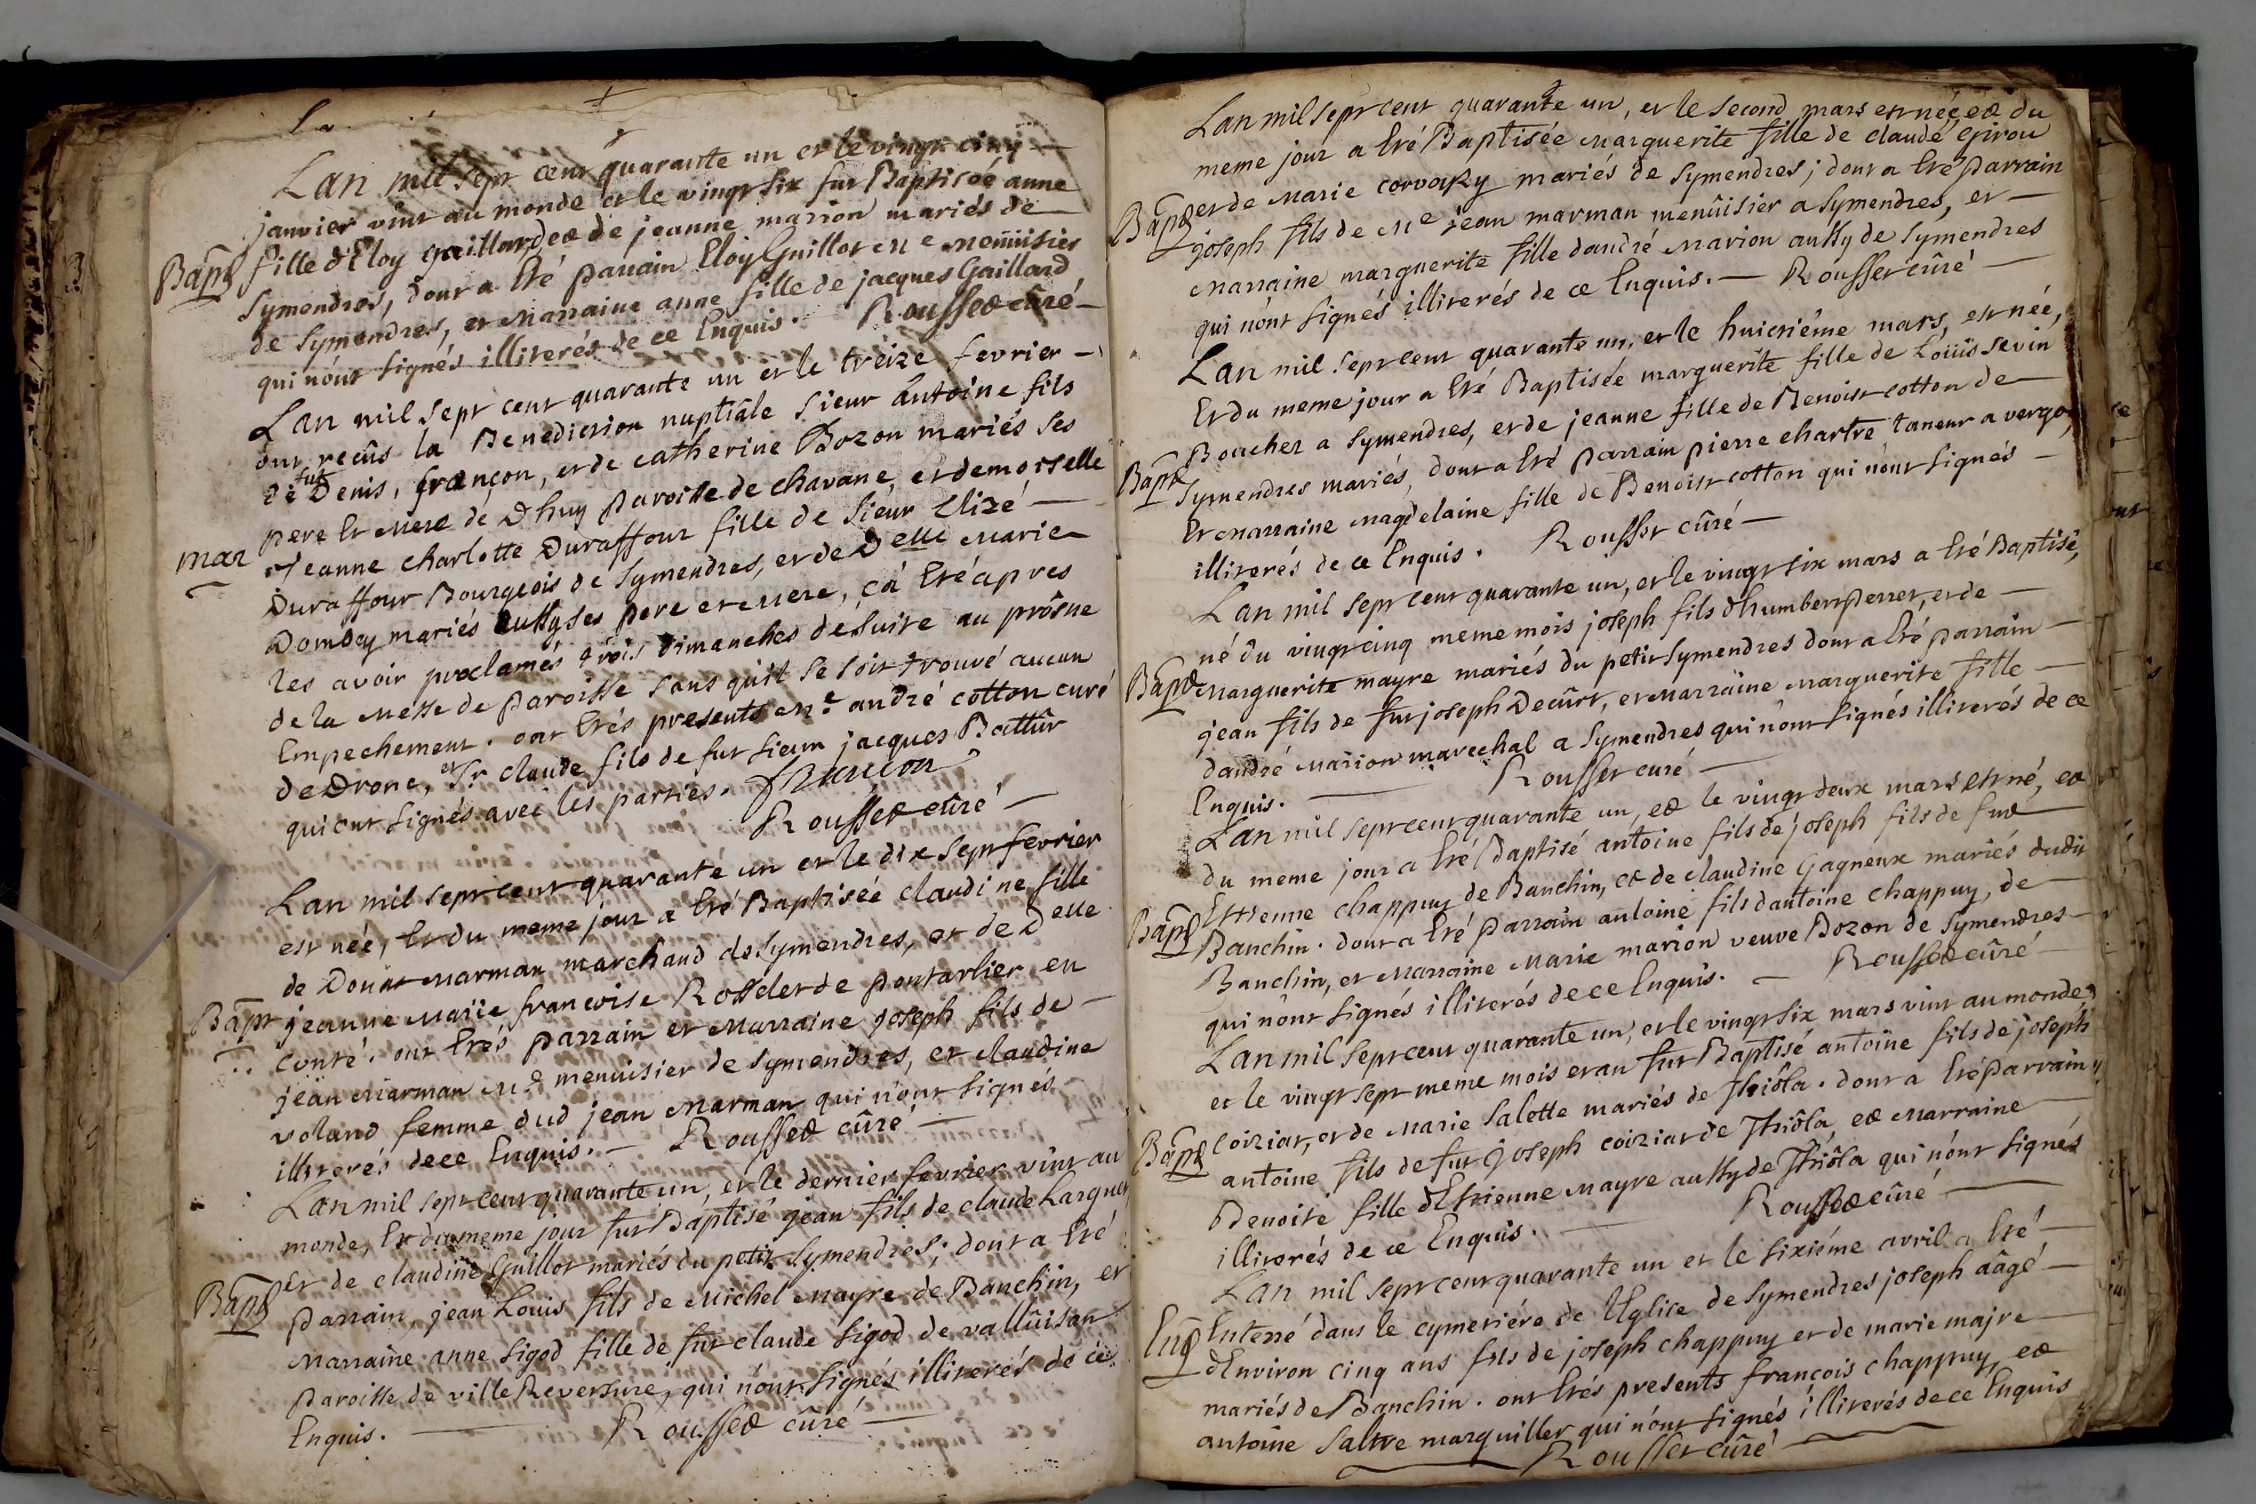 Lan mil sept cent quarante un et le vingt cinq
janvier vint au monde et le vingt six fut Baptisée anne
Bapt fille d'Eloy Gaillard, et de jeanne marion mariés de
Symendres, dont a Eté parrain Eloy Guillot Me menuisier
de Symendres, et Marraine anne fille de jacques Gaillard
qui n'ont signés illiterés de ce Enquis. Rousset cûré
Lan mil sept cent quarante un et le treize fevrier
ont reçûs la Benediction nuptiâle sieur antoine fils
de fut Denis, françon, et de catherine Bozon mariés ses
pere Et Mere de Dhuy paroisse de chavane, et demoiselle
mar Jeanne charlotte Duraffour fille de sieur Elizé
Duraffour Bourgeois de Symendres, et de Delle Marie
Dombey mariés aussy ses pere et mere, ça Eté apres
les avoir proclamés trois Dimanches de suite au prôsne
de la Messe de paroisse sans quil se soit trouvé aucun
Empechement. ont Etés presents mre andré cotton curé
de Drone, et Sr claude fils de fut sieur jacques Battûr
qui ont signés avec les parties. françon
Rousset cûré
Lan mil sept cent quarante un et le dix sept fevrier
est née, Et du meme jour a Eté Baptisée claudine fille
de Donat Marman marchand de Symendres, et de Delle
Bapt jeanne Marie francoise Rosselet de pontarlier en
conté. ont Etés parrain et Marraine joseph fils de
jean Marman Me menuisier de Symendres, et claudine
voland femme dud jean Marman qui n'ont signés
illiterés de ce Enquis. Rousset cûré
Lan mil sept cent quarante un, et le dernier fevrier vint au
monde, Et du meme jour fut Baptisé jean fils de claude Larguet
Bapt Et de claudine Guillot mariés du petit Symendres; dont a Eté
parrain jean Louis fils de Michel Mayre de Banchin, et
Marraine anne sigod fille de fut claude sigod de vallûisan
paroisse de ville Reversure, qui n'ont signés illiterés de ce
Enquis. Rousset cûré
Lan mil sept cent quarante un, et le second mars est née, et du
meme jour a Eté Baptisée Marguerite fille de claude Girou
Bapt et de Marie corvasy mariés de Symendres; dont a Eté parrain
joseph fils de Me jean marman menûisier a Symendres, et
Marraine marguerite fille dandré Marion aussy de Symendres
qui n'ont signés illiterés de ce Enquis. Rousset cûré
Lan mil sept cent quarante un, et le huictiéme mars, est née,
Et du meme jour a Eté Baptisée marguerite fille de Loüis sevin
Boucher a Symendres, et de jeanne fille de Benoist cotton de
Bapt Symendres mariés, dont a Eté parrain pierre chartre taneur a vergo
Et Marraine Magdelaine fille de Benoist cotton qui n'ont signés
illiterés de ce Enquis. Rousset cûré
Lan mil sept cent quarante un, et le vingt six mars a Eté Baptisé,
né du vingt cinq meme mois joseph fils dhumbert perret, et de
Bapt Marguerite mayre mariés du petit Symendres dont a Eté parrain
jean fils de fut joseph Decûrt, et Marraine Marguerite fille
dandré Marion marechal a Symendres qui n'ont signés illiterés de ce
Enquis. Rousset curé
Lan mil sept cent quarante un, et le vingt deux mars est né, et
du meme jour a Eté Baptisé antoine fils de joseph fils de fut
Bapt Estienne chappuy de Banchin, et de claudine Gagneux mariés dudit
Banchin. dont a Eté parrain antoine fils dantoine chappuy, de
Banchin, et Marraine Marie marion veuve Bozon de Symendres
qui n'ont signés illiterés de ce Enquis. Rousset cûré
Lan mil sept cent quarante un, et le vingt six mars vint au monde,
et le vingt sept meme mois et an fut Baptisé antoine fils de joseph
Bapt coiziat, et de Marie Salotte mariés de Thiôla. dont a Eté parrain
antoine fils de fut joseph coiziat de Thiôla, et Marraine
Benoite fille d'Etienne Mayre aussy de Thiôla qui n'ont signés
illiterés de ce Enquis. Rousset cûré
Lan mil sept cent quarante un et le sixiéme avril a Eté
Enq Enterré dans le cymetiére de l'Eglise de Symendres joseph âagé
d'Environ cinq ans fils de joseph chappuy et de marie majre
mariés de Banchin. ont Etés presents françois chappuy, et
antoine Saltre marguiller qui n'ont signés illiterés de ce Enquis
Rousset cûré